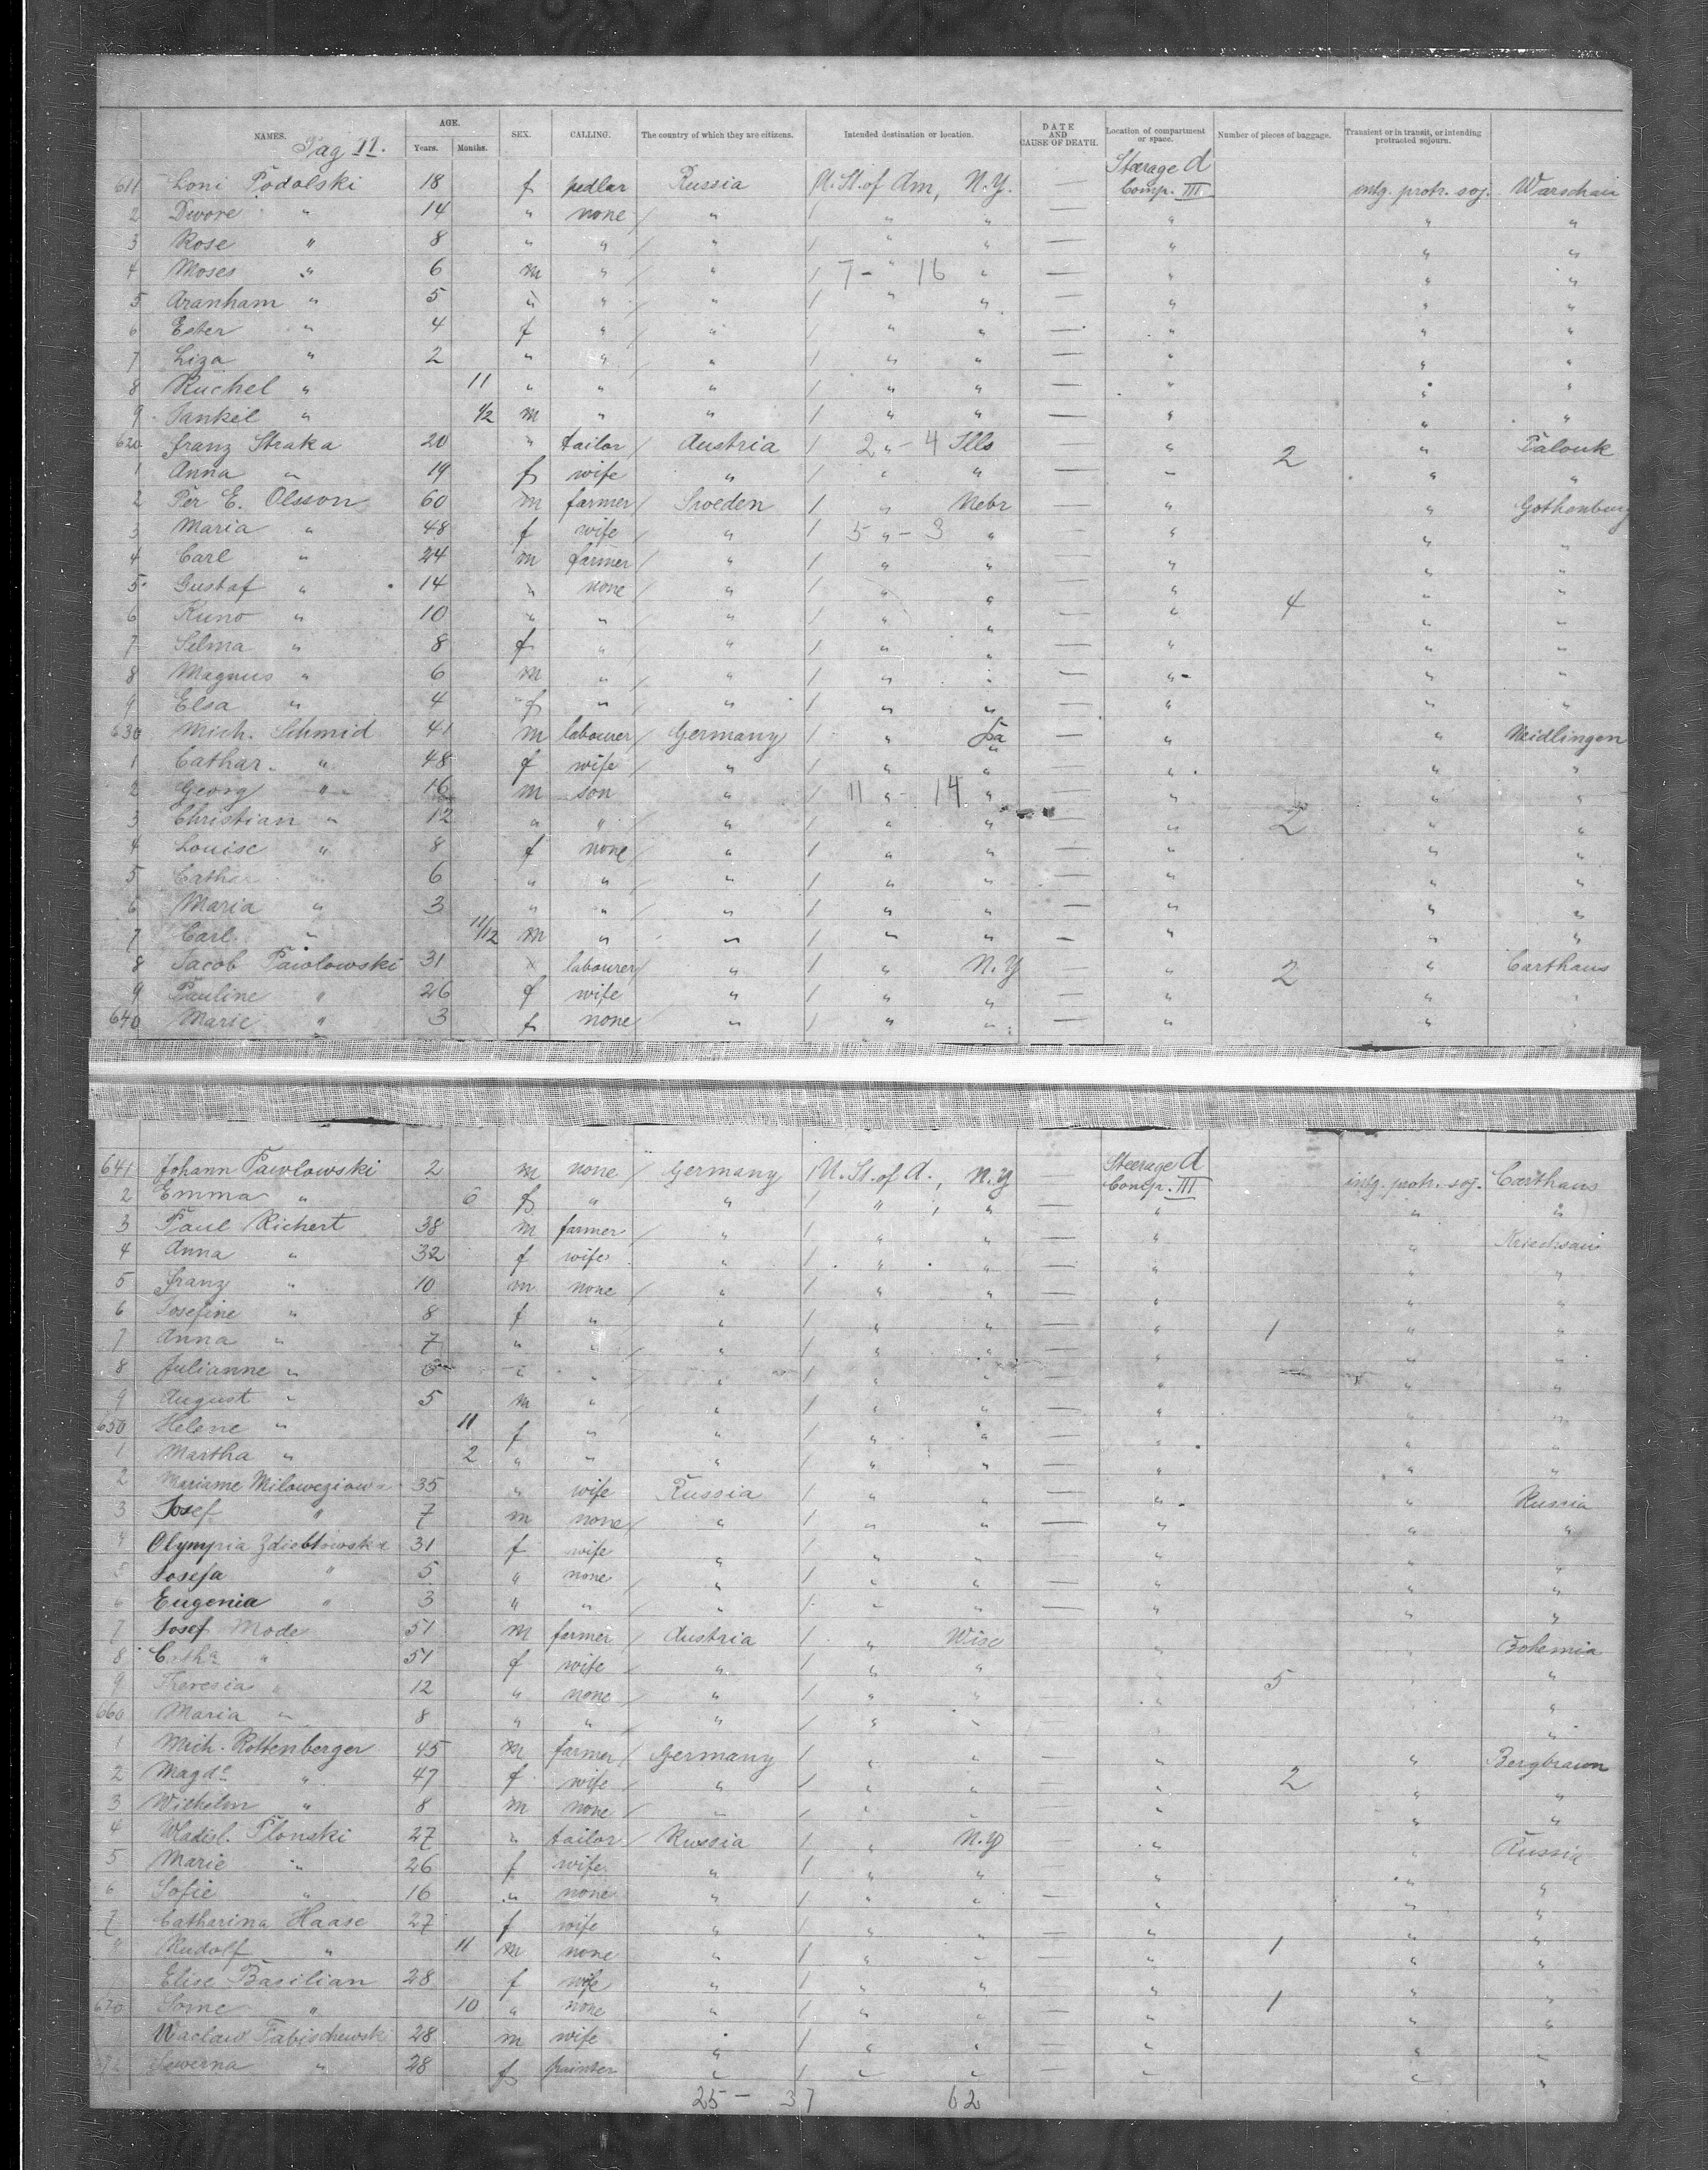 NAMES. AGE. Years. Months. SEX. CALLING. The country of which they are citizens. Intended destination or location. DATE AND CAUSE OF DEATH. Location of compartment or space. Number of pieces of baggage. Transient or in transit, or intending protracted sojourn.
Pag 11.
Steerage d
611 Loni Podolski 18 f pedlar Russia U. St. of Am, N.Y. — Comp. III intg. protr. soj. Warschau
2 Dwore " 14 " none " " " — " " "
3 Rose " 8 " " " " " — " " "
4 Moses " 6 m " " 7 - " 16 " — " " "
5 Aranham " 5 " " " " " — " " "
6 Ester " 4 f " " " " — " " "
7 Liza " 2 " " " " " — " " "
8 Ruchel " 11 " " " " " — " " "
9 Jankel " 1/2 m " " " " — " " "
620 Franz Straka 20 " tailor Austria 2 " - 4 Ills — " 2 "
1 Anna " 19 f wife " " " — " " "
2 Per E. Olsson 60 m farmer Sweden " Nebr — " " Gothenburg
3 Maria " 48 f wife " 5 " - 3 " — " " "
4 Carl " 24 m farmer " " " — " " "
5 Gustaf " 14 " none " " " — " " "
6 Kuno " 10 " " " " " — " 4 " "
7 Selma " 8 f " " " " — " " "
8 Magnus " 6 m " " " " — " " "
9 Elsa " 4 f " " " " — " " "
630 Mich. Schmid 41 m labourer Germany " Pa — " " Neidlingen
1 Cathar. " 48 f wife " " " — " " "
2 Georg " 16 m son " 11 " - 14 " — " " "
3 Christian " 12 " " " " " — " 2 " "
4 Louise " 8 f none " " " — " " "
5 Cathar " 6 " " " " " — " " "
6 Maria " 3 " " " " " — " " "
7 Carl " 11/12 m " " " " — " " "
8 Jacob Pawlowski 31 " labourer " " N.Y — " 2 " Carthaus
9 Pauline " 26 f wife " " " — " " "
640 Marie " 3 f none " " " — " " "
Steerage d
641 Johann Pawlowski 2 m none Germany U. St. of A., N.Y — Comp. III intg. protr. soj. Carthaus
2 Emma " 6 f " " " " — " " "
3 Paul Richert 38 m farmer " " " — " "
4 Anna " 32 f wife " " " — " " "
5 Franz " 10 m none " " " — " " "
6 Josefine " 8 f " " " " — " " "
7 Anna " 7 " " " " " — " 1 " "
8 Julianne " 6 " " " " " — " " "
9 August " 5 m " " " " — " " "
650 Helene " 11 f " " " " — " " "
1 Martha " 2 " " " " " — " " "
2 Marianne 35 " wife Russia " " — " " Russia
3 Josef " 7 m none " " " — " " "
4 Olympia Zdieblowska 31 f wife " " " — " " "
5 Josefa " 5 " none " " " — " " "
6 Eugenia " 3 " " " " " — " " "
7 Josef Mode 51 m farmer Austria " Wisc — " " Bohemia
8 Catha " 51 f wife " " " — " " "
9 Theresia " 12 " none " " " — " 5 " "
660 Maria " 8 " " " " " — " "
1 Mich. Rottenberger 45 m farmer Germany " " — " " Bergbraun
2 Magde " 47 f wife " " " — " 2 " "
3 Wilhelm " 8 m none " " " — " " "
4 Wladisl. Plonski 27 " tailor Russia " N.Y — " " Russia
5 Marie " 26 f wife " " " — " " "
6 Sofie " 16 " none " " " — " " "
7 Catharina Haase 27 f wife " " " — " " "
" Rudolf " 11 m none " " " — " 1 " "
Elise Basilian 28 f wife " " " — " " "
670 " 10 " none " " " — " 1 " "
Waclaw Fabischewski 28 m wife " " " — " " "
72 Sewerna " 28 f painter " " " — " " "
25 - 37 62